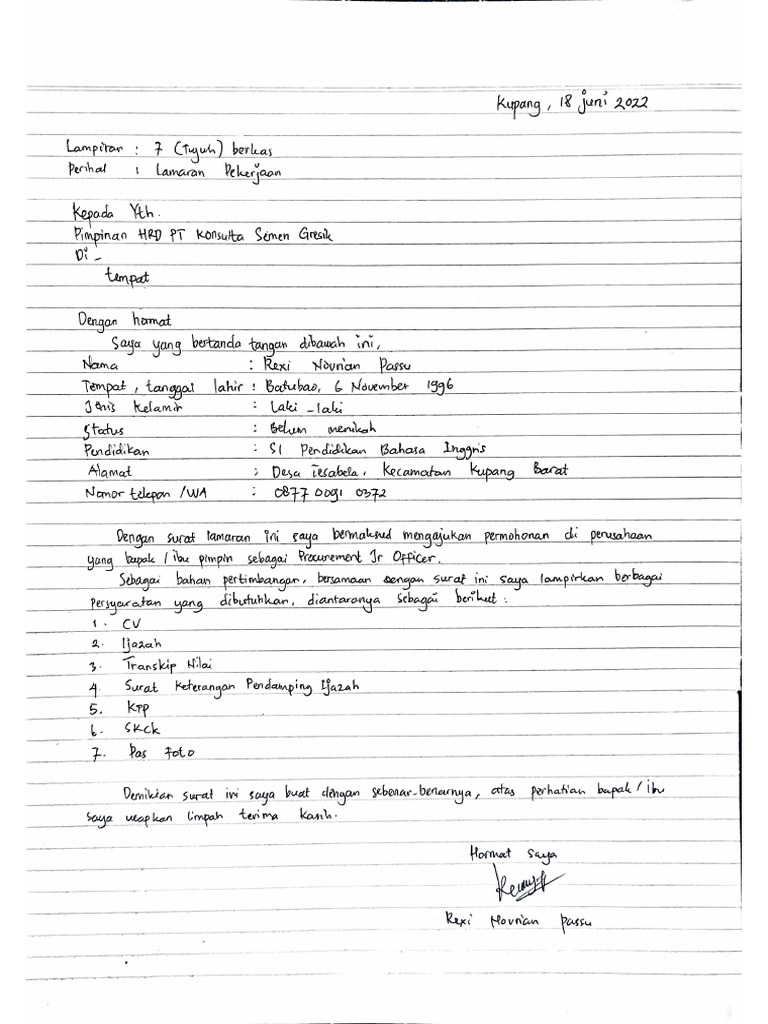 Kupang, 18 Juni 2022
Lampiran : 7 (Tujuh) berkas
Perihal : Lamaran Pekerjaan
Kepada Yth.
Pimpinan HRD PT Konsulta Semen Gresik
Di -
tempat
Dengan hormat
Saya yang bertanda tangan dibawah ini,
Nama : Rexi Novrian Passu
Tempat, tanggal lahir : Batubao, 6 November 1996
Jenis Kelamin : Laki - laki
Status : Belum menikah
Pendidikan : S1 Pendidikan Bahasa Inggris
Alamat : Desa Tesabela, Kecamatan Kupang Barat
Nomor telepon /WA : 0877 0091 0372
Dengan surat lamaran ini saya bermaksud mengajukan permohonan di perusahaan
yang bapak / ibu pimpin sebagai Procurement Jr Officer.
Sebagai bahan pertimbangan, bersamaan dengan surat ini saya lampirkan berbagai
Persyaratan yang dibutuhkan, diantaranya sebagai berikut :
1. CV
2. Ijazah
3. Transkip Nilai
4. Surat Keterangan Pendamping Ijazah
5. KTP
6. SKCK
7. Pas Foto
Demikian surat ini saya buat dengan sebenar-benarnya, atas perhatian bapak / ibu
saya ucapkan limpah terima kasih.
Hormat saya
Rexi Novrian Passu